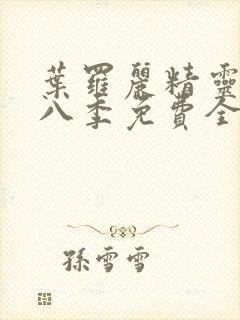 葉羅麗精靈
八季免費全
孫雪雪